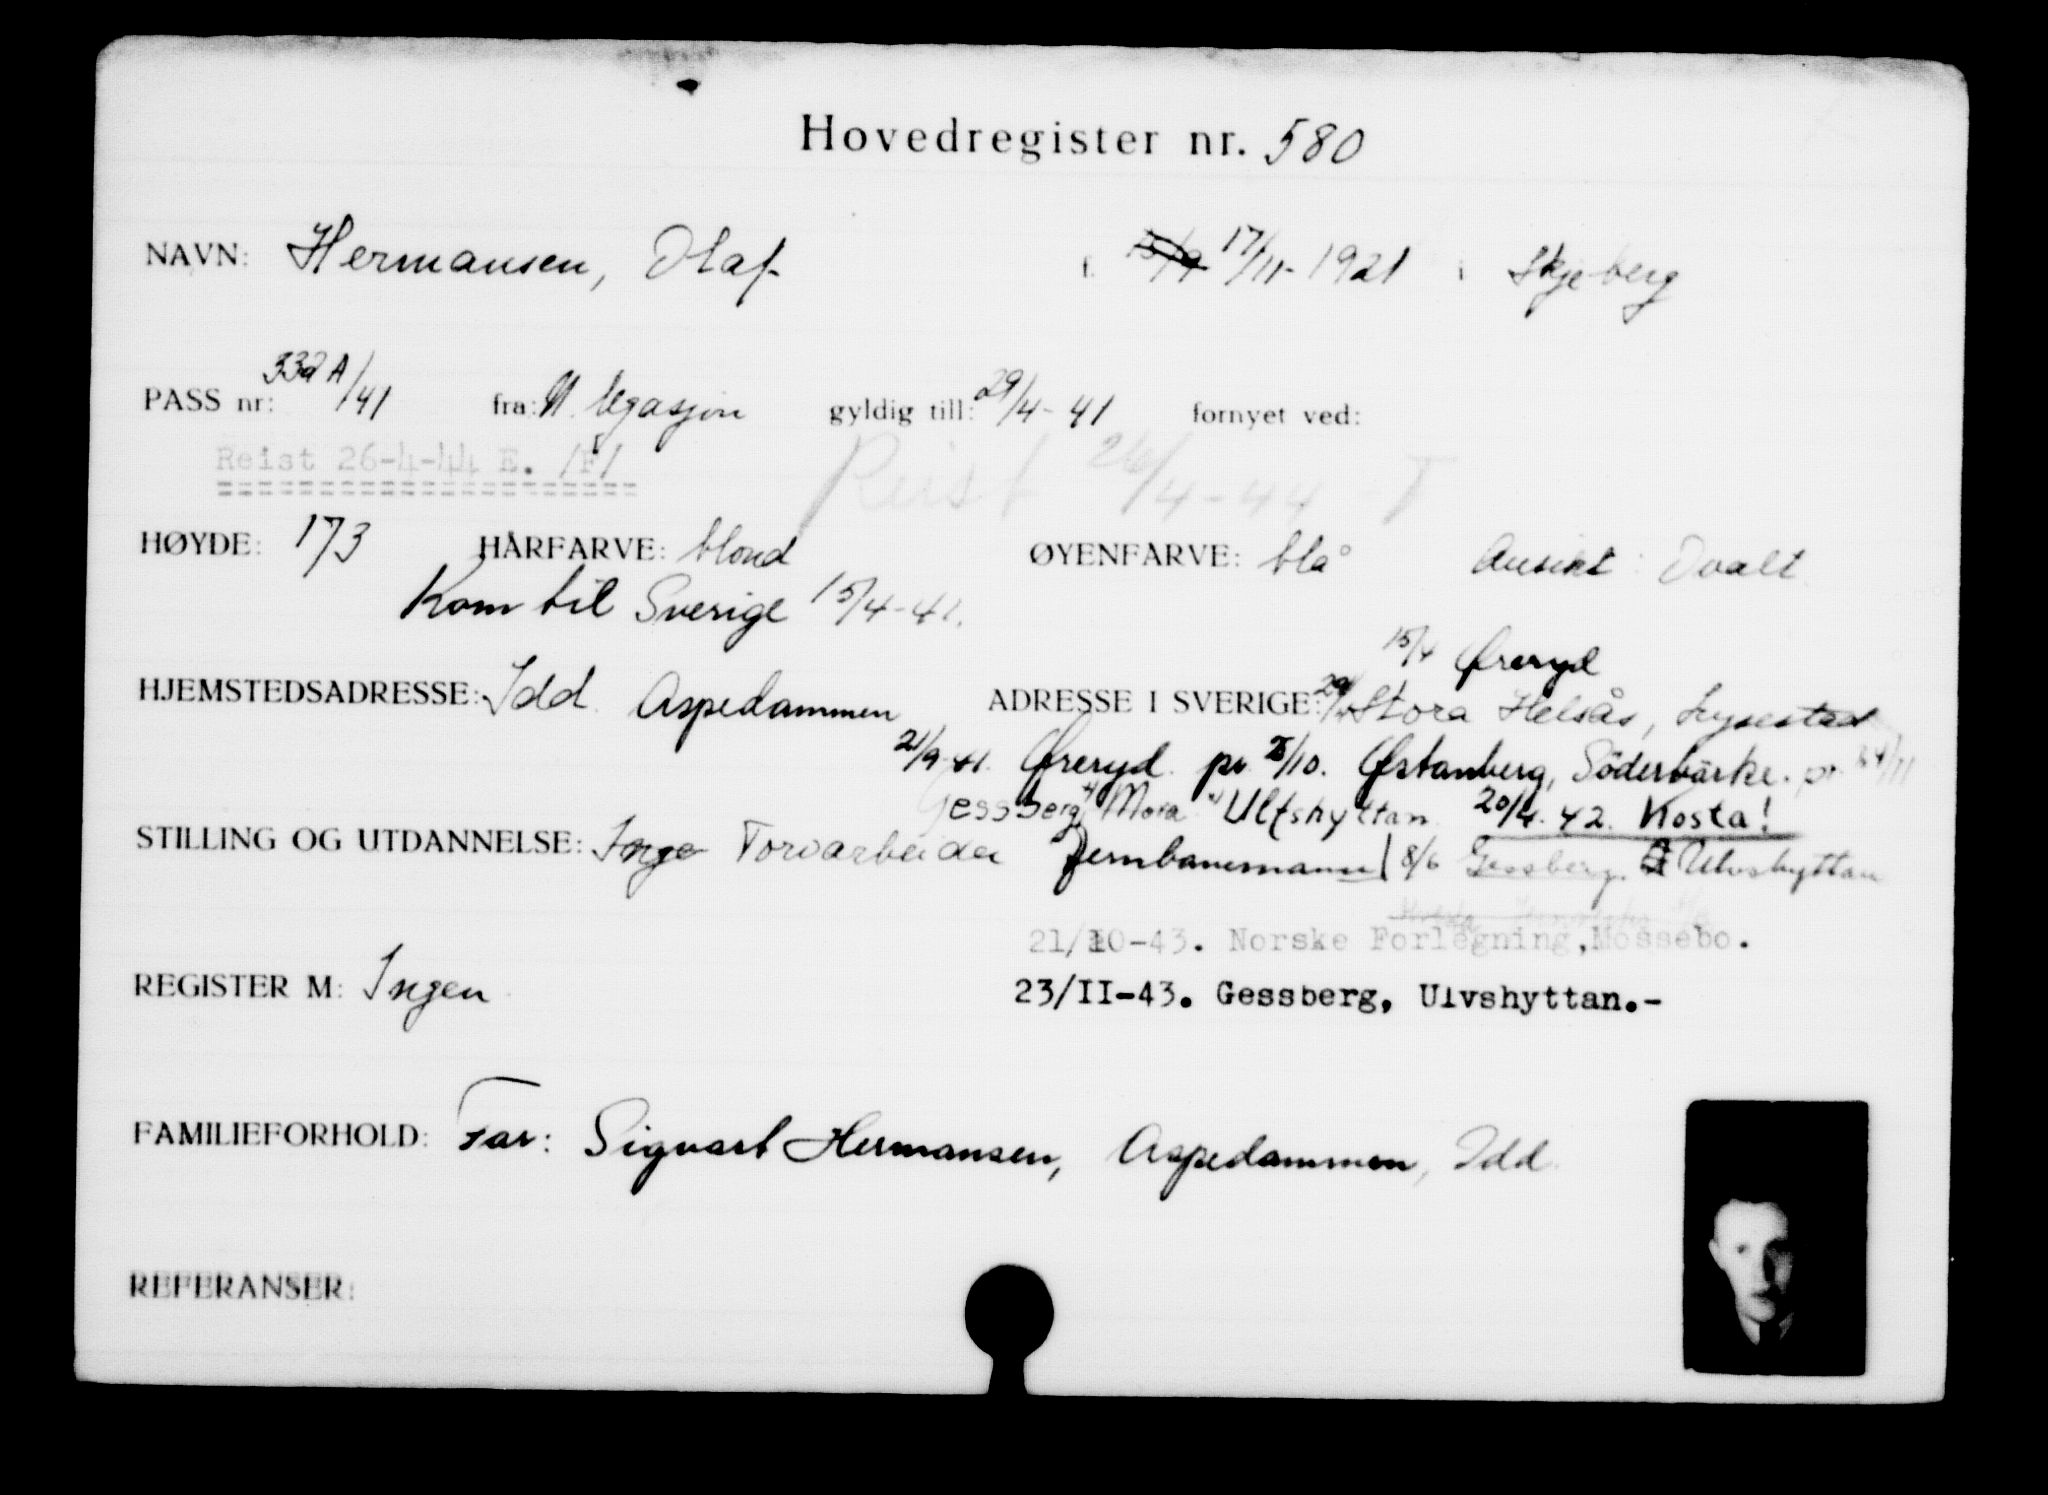 Hovedregister nr. 580
NAVN: Hermansen, Olaf f. 15/9 17/11-1921 i Skjeberg
PASS nr: 332 A/41 fra: N. legasjon gyldig till: 29/4-41 fornyet ved:
Reist 26-4-44 E. /F/ Reist 26/4-44
HØYDE: 173 HÅRFARVE: blond ØYENFARVE: blå Ansikt: Ovalt
Kom til Sverige 15/4-41.
15/4 Øreryd
HJEMSTEDSADRESSE: Idd Aspedammen ADRESSE I SVERIGE: 29/4 Stora Helsås, Lysestad
21/9-41. Øreryd pr. 2/10. Østanberg, Söderbärke. pr. 24/11
Gessberg, Mora Ulfshyttan 20/4-42. Kosta!
STILLING OG UTDANNELSE: Inge Torvarbeider Jernbanemann 8/6 Gessberg Ulvshyttan
21/10-43. Norske Forlegning, Mossebo.
REGISTER M: Ingen
23/II-43. Gessberg, Ulvshyttan.-
FAMILIEFORHOLD: Far: Sigvart Hermansen, Aspedammen, Idd.
REFERANSER: